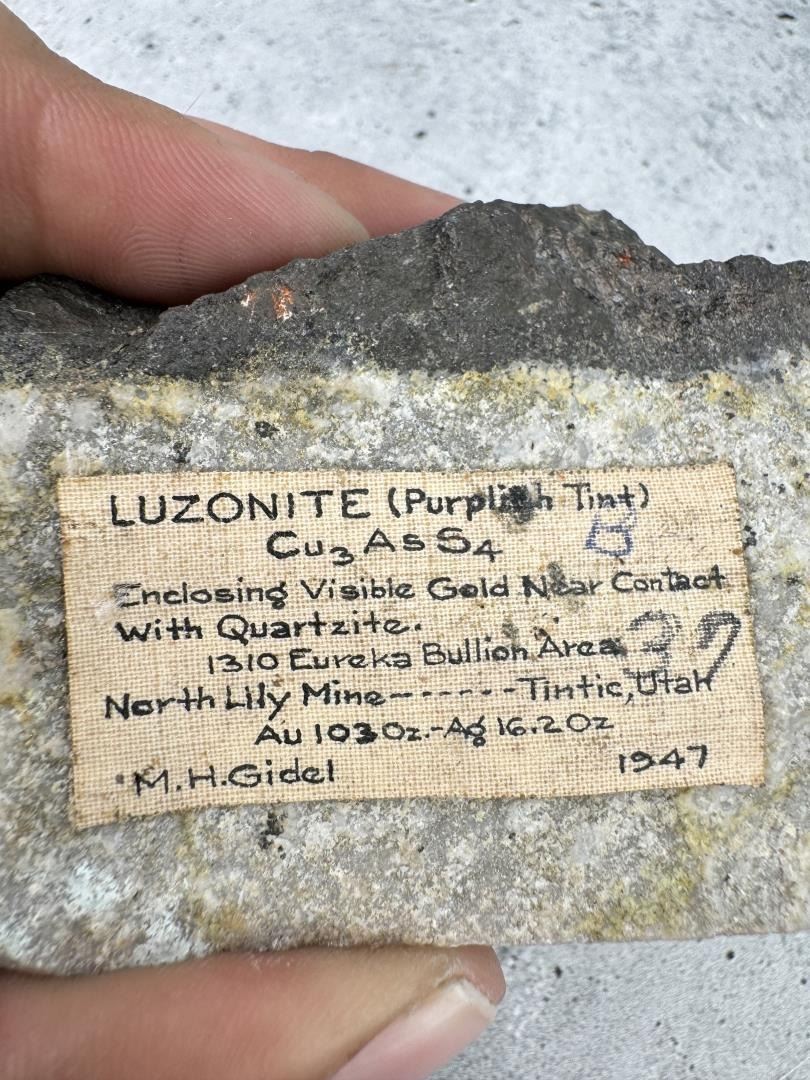 LUZONITE (Purplish Tint)
Cu3AsS4
B
Enclosing Visible Gold Near Contact
With Quartzite.
1310 Eureka Bullion Area
37
North Lily Mine------Tintic, Utah
Au 103 Oz.-Ag 16.2 Oz
M.H.Gidel 1947